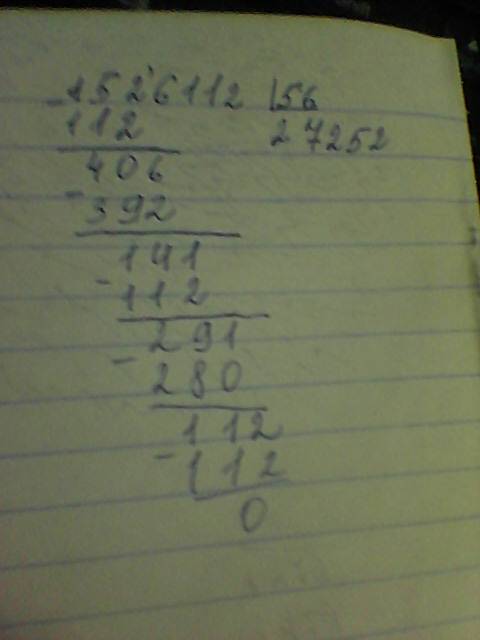 - 1526112 | 56
112 27252
406
- 392
141
- 112
291
- 280
112
- 112
0